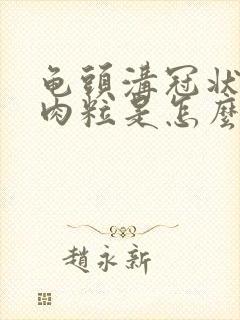 龟頭溝冠狀
肉粒是怎麼
趙永新